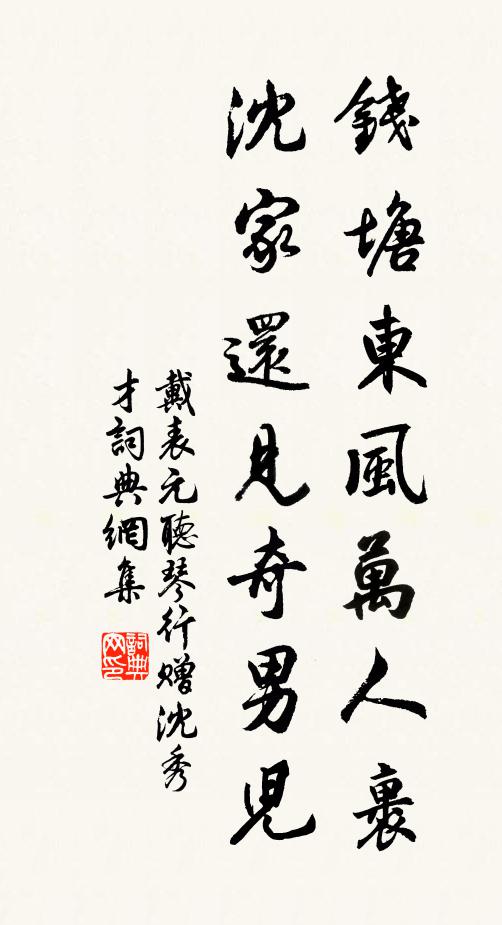 錢塘東風萬人裹
沈家還見奇男児
戴表元聽琴行贈沈秀
才詞典網集
詞典网印